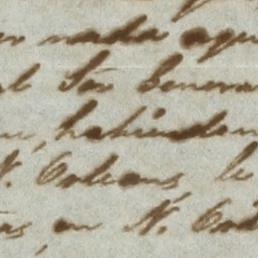 nada aqu
Sor Genera
, habiendom
N. Orleans, le
en N. Orl